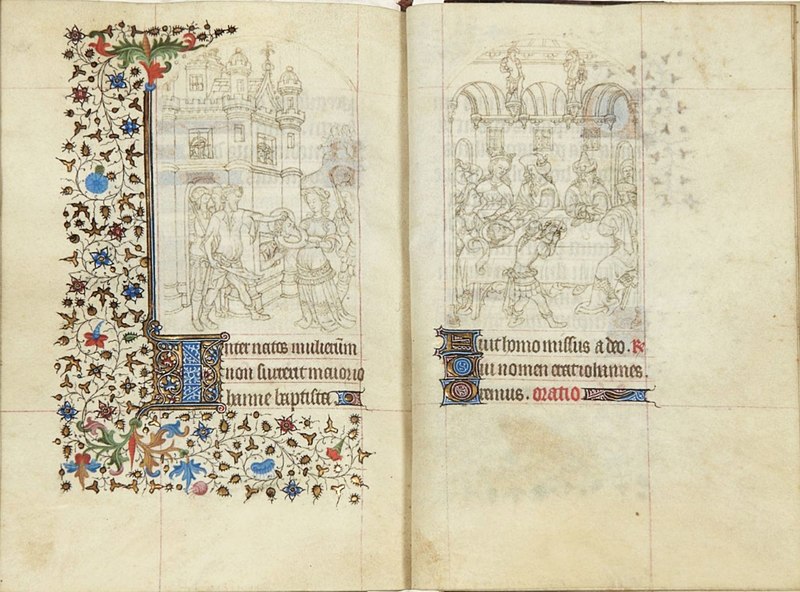 Inter natos mulierū
non surrexit maior io
hanne baptista.
Fuit homo missus a deo. R
Cui nomen erat iohannes.
Oremus. oratio